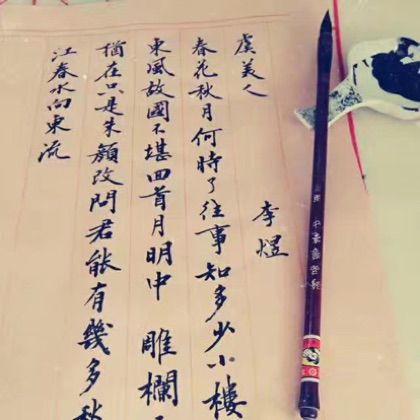 虞美人
李煜
春花秋月何時了往事知多少小樓
東風故國不堪回首月明中雕欄
猶在只是朱顏改問君能有幾多
江春水向東流